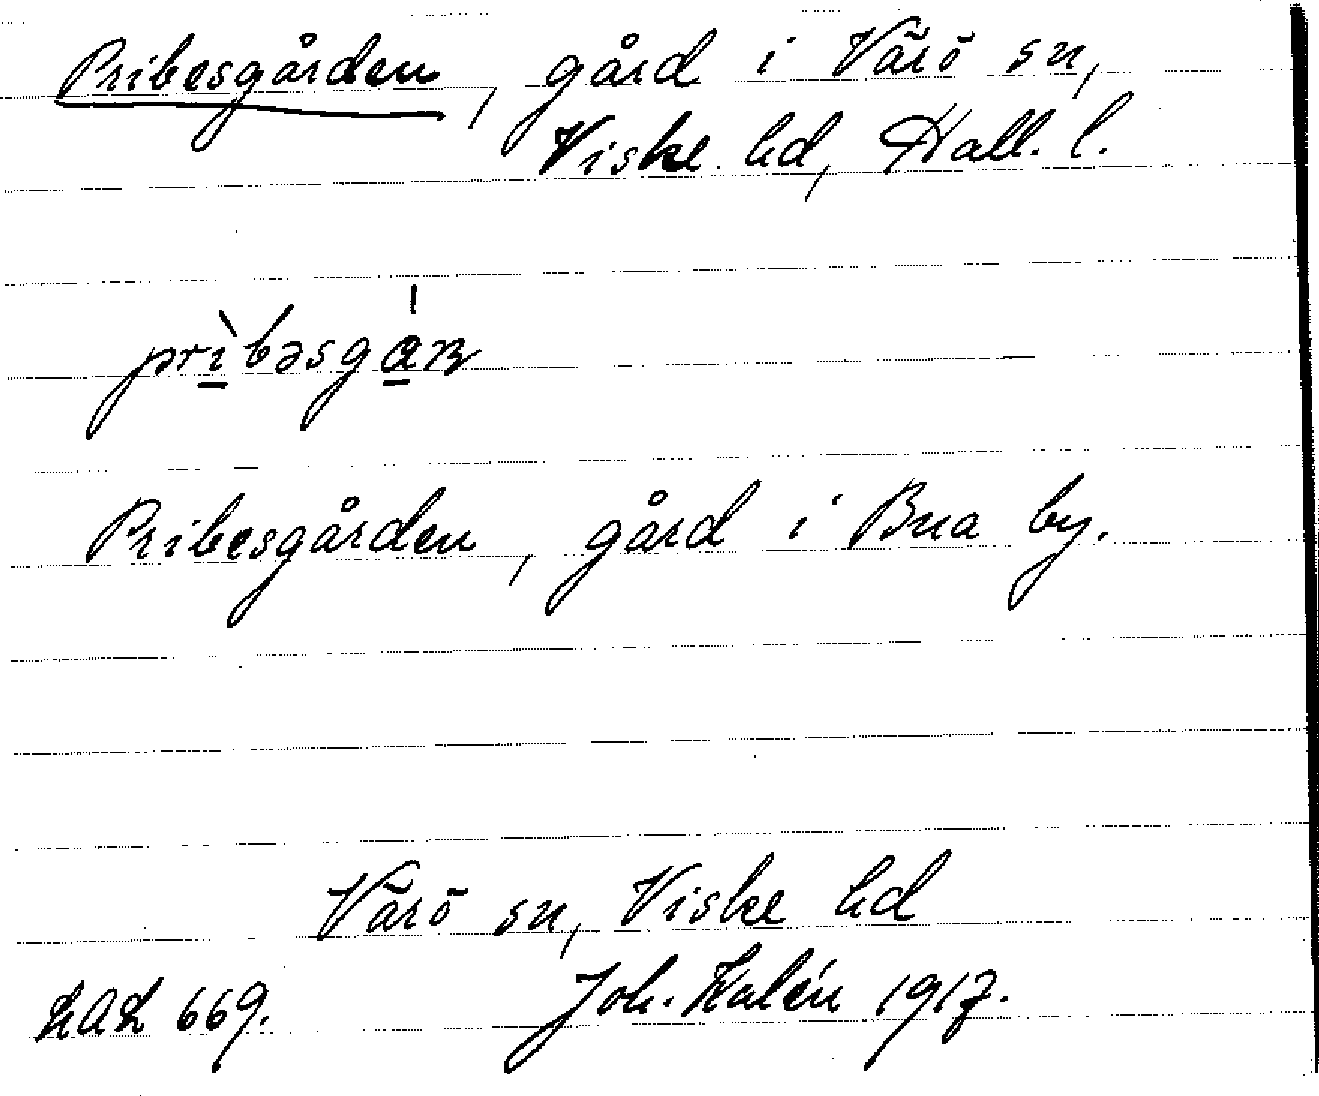 Pribesgården, gård i Värö sn,
Viske hd, Hall. l.
prìbəsgán
Pribesgården, gård i Bua by.
Värö sn, Viske hd
669. Joh. Kalén 1917.